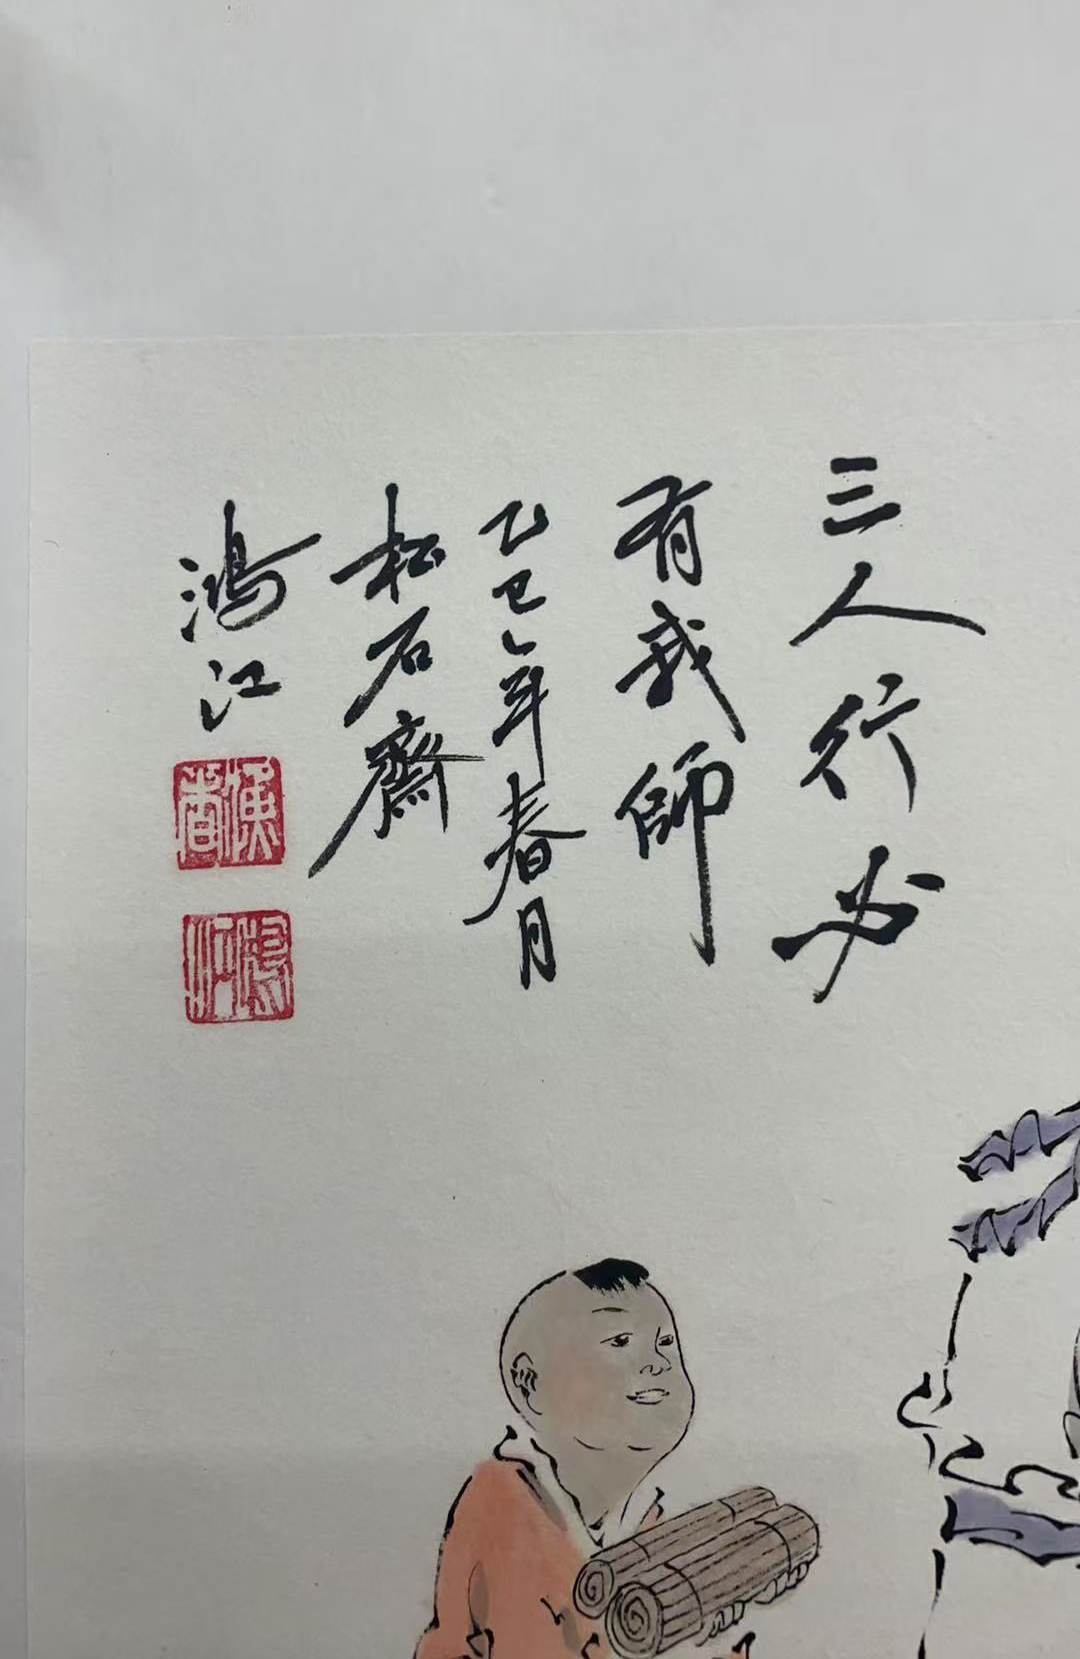 三人行必
有我師
乙巳年春月
松石齋
鴻江